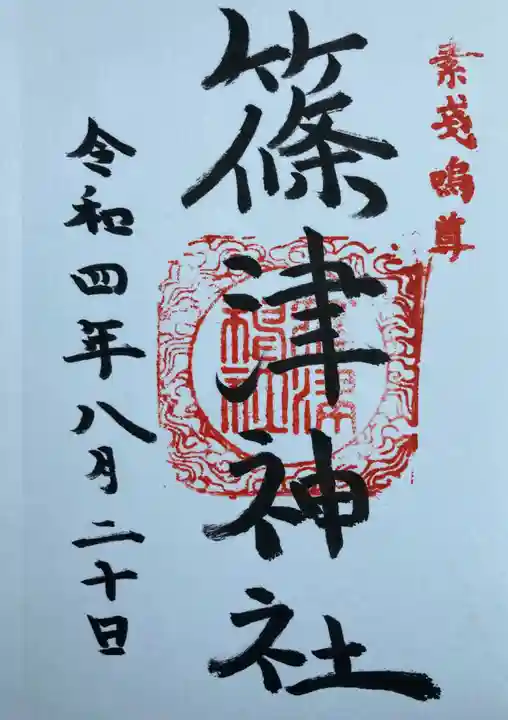 素戔嗚尊
篠津神社
令和四年八月二十日